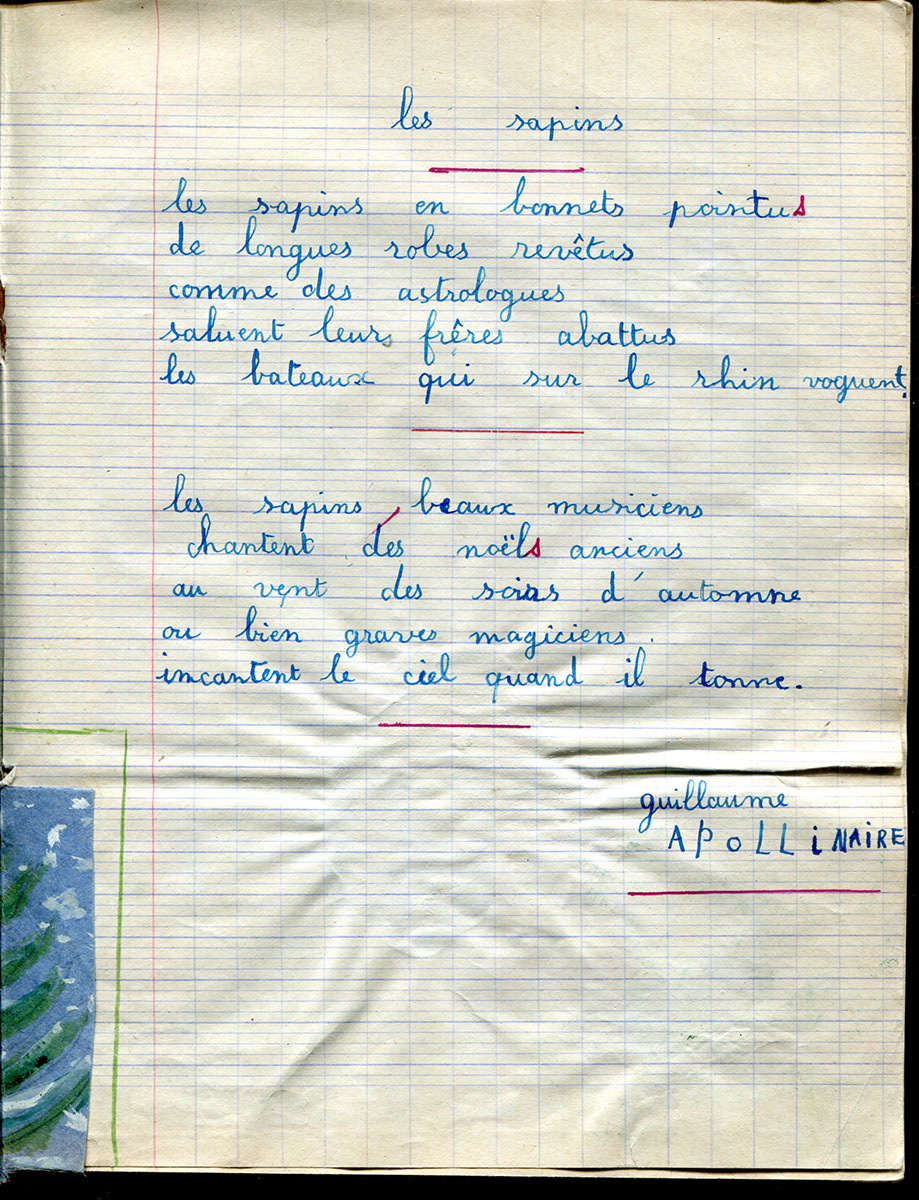 les sapins
les sapins en bonnets pointus
de longues robes revêtus
comme des astrologues
saluent leurs frères abattus
les bateaux qui sur le rhin voguent.
les sapins beaux musiciens
chantent des noëls anciens
au vent des soirs d'automne
ou bien graves magiciens.
incantent le ciel quand il tonne.
guillaume
APOLLiNAiRE